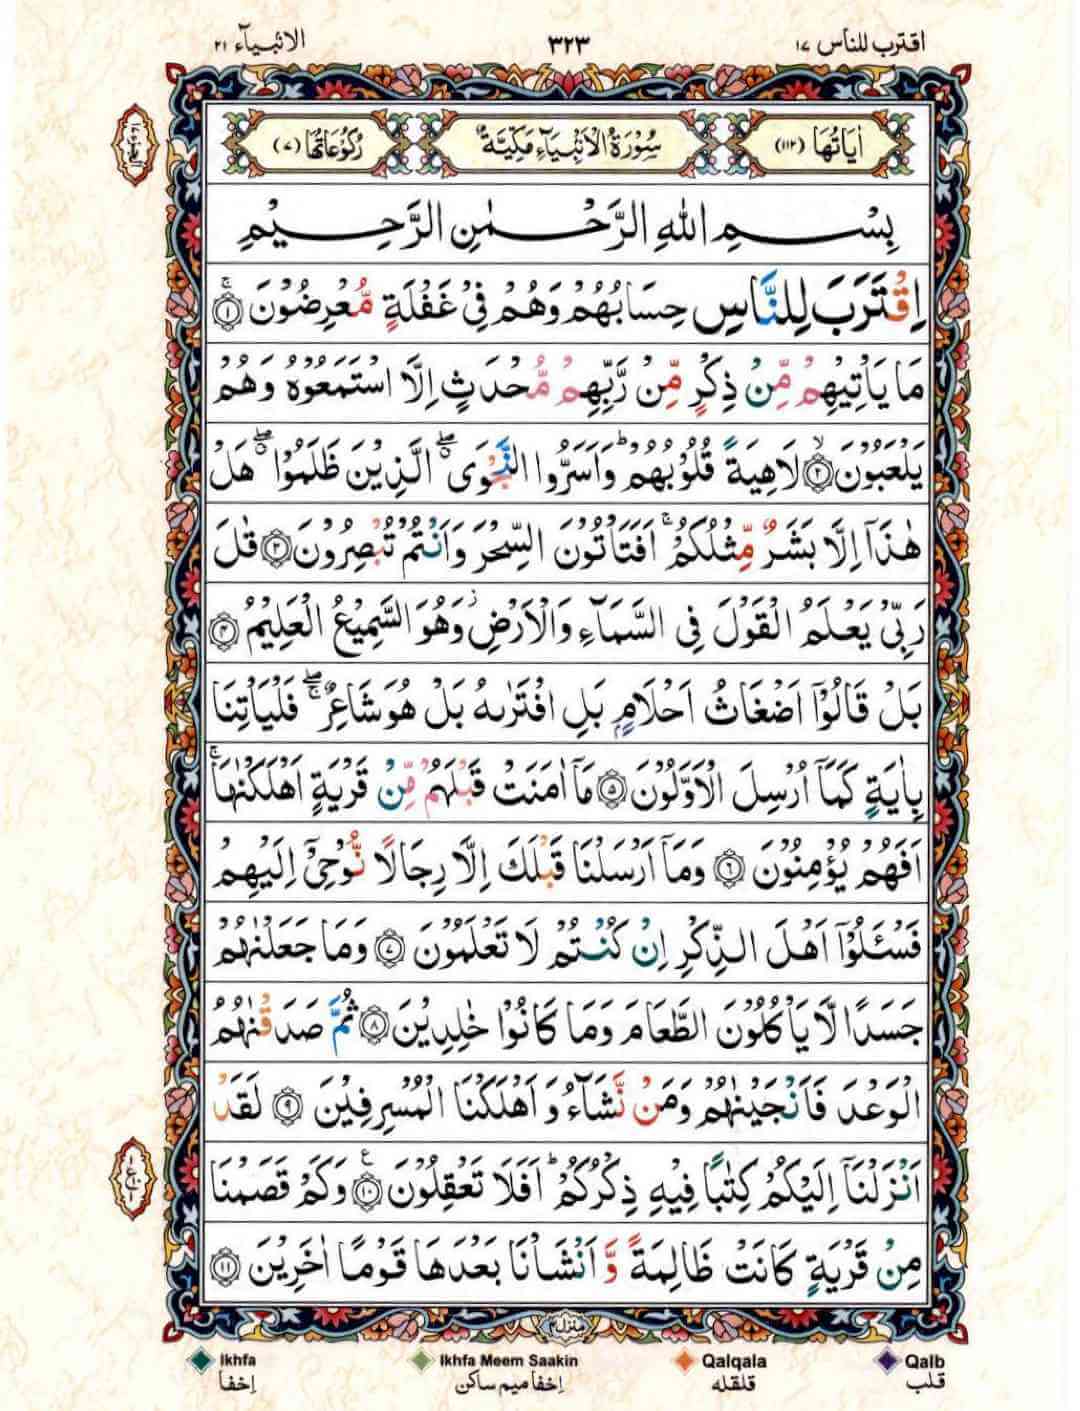 اقترب للناس ١٧
٣٢٣
الانبیآء ٢١
اٰیَاتُهَا (١١٢)
سُوْرَةُ الْاَنْۢبِیَآءِ مَكِّیَّةٌ
رُكُوْعَاتُهَا (٧)
بِسْمِ اللّٰهِ الرَّحْمٰنِ الرَّحِیْمِ
اِقْتَرَبَ لِلنَّاسِ حِسَابُهُمْ وَهُمْ فِیْ غَفْلَةٍ مُّعْرِضُوْنَ ۚ ﴿١﴾
مَا یَاْتِیْهِمْ مِّنْ ذِكْرٍ مِّنْ رَّبِّهِمْ مُّحْدَثٍ اِلَّا اسْتَمَعُوْهُ وَهُمْ
یَلْعَبُوْنَ ۙ ﴿٢﴾ لَاهِیَةً قُلُوْبُهُمْ ؕ وَاَسَرُّوا النَّجْوَی ۖۗ الَّذِیْنَ ظَلَمُوْا ۖۗ هَلْ
هٰذَاۤ اِلَّا بَشَرٌ مِّثْلُكُمْ ۚ اَفَتَاْتُوْنَ السِّحْرَ وَاَنْتُمْ تُبْصِرُوْنَ ﴿٣﴾ قٰلَ
رَبِّیْ یَعْلَمُ الْقَوْلَ فِی السَّمَآءِ وَالْاَرْضِ ؗ وَهُوَ السَّمِیْعُ الْعَلِیْمُ ﴿٤﴾
بَلْ قَالُوْۤا اَضْغَاثُ اَحْلَامٍۭ بَلِ افْتَرٰىهُ بَلْ هُوَ شَاعِرٌ ۖۚ فَلْیَاْتِنَا
بِاٰیَةٍ كَمَاۤ اُرْسِلَ الْاَوَّلُوْنَ ﴿٥﴾ مَاۤ اٰمَنَتْ قَبْلَهُمْ مِّنْ قَرْیَةٍ اَهْلَكْنٰهَا ۚ
اَفَهُمْ یُؤْمِنُوْنَ ﴿٦﴾ وَمَاۤ اَرْسَلْنَا قَبْلَكَ اِلَّا رِجَالًا نُّوْحِیْۤ اِلَیْهِمْ
فَسْـَٔلُوْۤا اَهْلَ الذِّكْرِ اِنْ كُنْتُمْ لَا تَعْلَمُوْنَ ﴿٧﴾ وَمَا جَعَلْنٰهُمْ
جَسَدًا لَّا یَاْكُلُوْنَ الطَّعَامَ وَمَا كَانُوْا خٰلِدِیْنَ ﴿٨﴾ ثُمَّ صَدَقْنٰهُمُ
الْوَعْدَ فَاَنْجَیْنٰهُمْ وَمَنْ نَّشَآءُ وَاَهْلَكْنَا الْمُسْرِفِیْنَ ﴿٩﴾ لَقَدْ
اَنْزَلْنَاۤ اِلَیْكُمْ كِتٰبًا فِیْهِ ذِكْرُكُمْ ؕ اَفَلَا تَعْقِلُوْنَ ﴿١٠﴾ ع وَكَمْ قَصَمْنَا
مِنْ قَرْیَةٍ كَانَتْ ظَالِمَةً وَّاَنْشَاْنَا بَعْدَهَا قَوْمًا اٰخَرِیْنَ ﴿١١﴾
Ikhfa
Ikhfa Meem Saakin
Qalqala
Qalb
إخفا
إخفا میم ساکن
قلقله
قلب